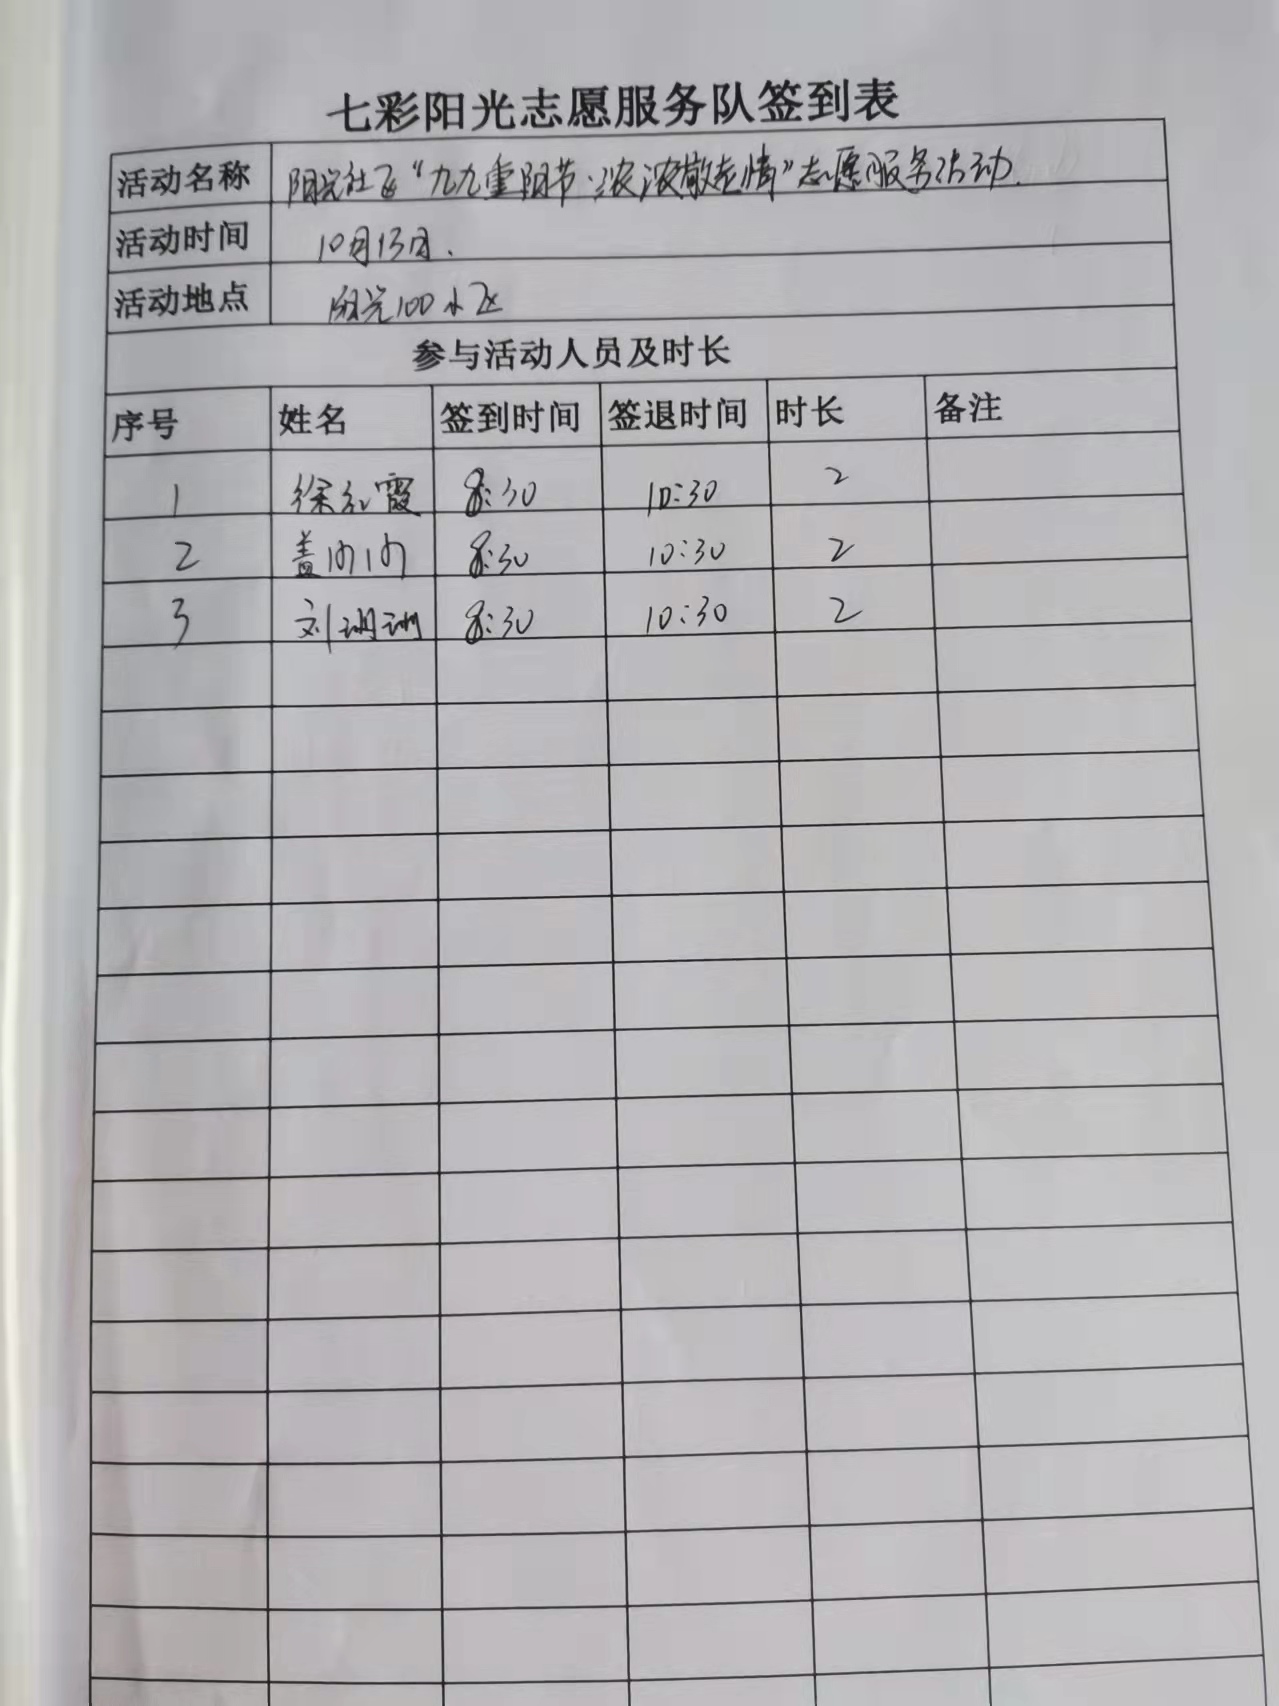 七彩阳光志愿服务队签到表
活动名称 阳光社区“九九重阳节·浓浓敬老情”志愿服务活动.
活动时间 10月13日.
活动地点 阳光100小区
参与活动人员及时长
序号 姓名 签到时间 签退时间 时长 备注
1 徐红霞 8:30 10:30 2
2 盖内内 8:30 10:30 2
3 刘珊珊 8:30 10:30 2